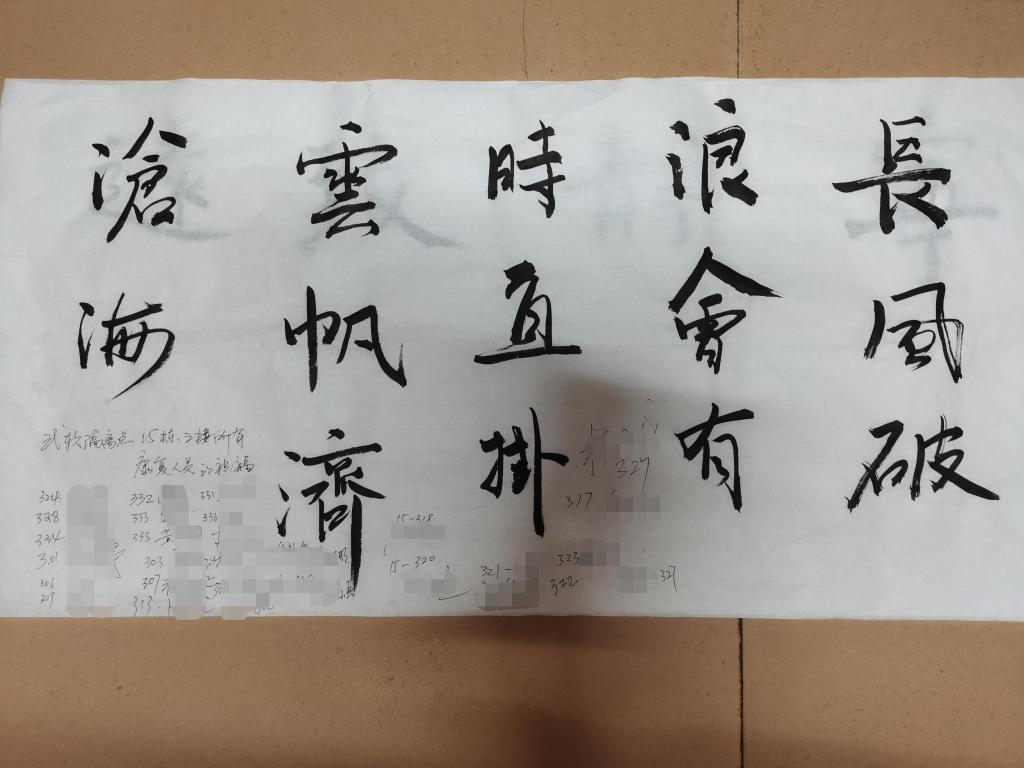 長風破
浪會有
時直掛
雲帆濟
滄海
武软隔离点15栋三楼所有
康复人员的祝福
324
332
331
328
333
336
334
335 黄
301
303
306
307
309
313
15-318
15-320
321
323
322
317
327
327